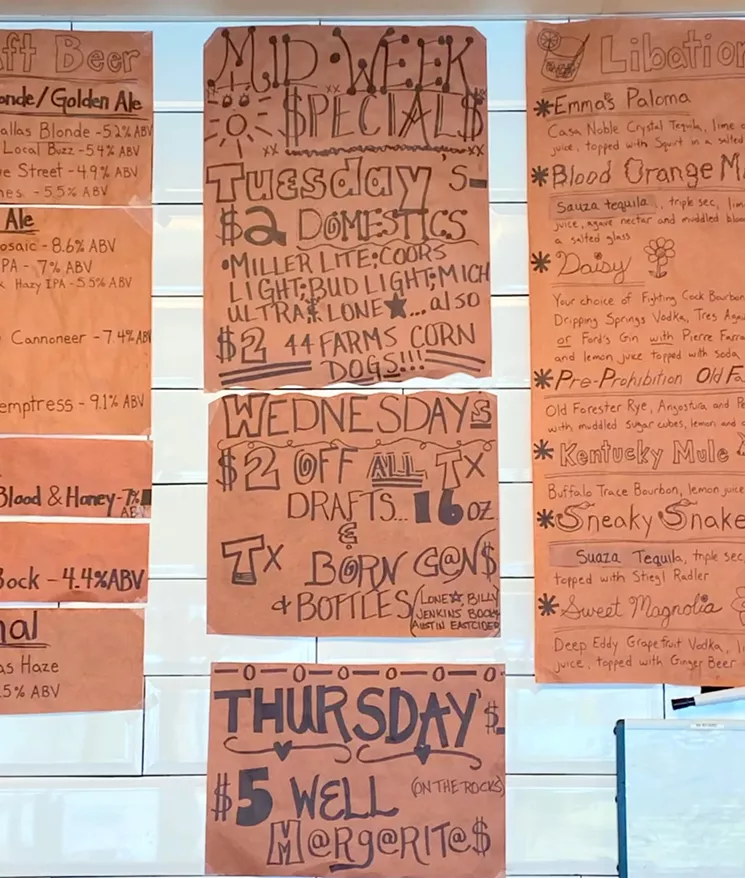 ft Beer
onde/Golden Ale
allas Blonde - 5.2% ABV
Local Buzz - 5.4% ABV
ve Street - 4.9% ABV
nes - 5.5% ABV
Ale
osaic - 8.6% ABV
PA - 7% ABV
k Hazy IPA - 5.5% ABV
Cannoneer - 7.4% ABV
emptress - 9.1% ABV
Blood & Honey - 7%
ABV
Bock - 4.4% ABV
nal
as Haze
.5% ABV
MID-WEEK
$PECIAL$
TUESDAY'S-
$2 DOMESTICS
•MILLER LITE;COORS
LIGHT;BUD LIGHT;MICH
ULTRA;&LONE★...also
$2 44 FARMS CORN
DOGS!!!
WEDNESDAYS
$2 OFF ALL TX
DRAFTS...16oz
&
TX BORN C@N$
& BOTTLES (LONE★, BILLY
JENKINS BOCK,
AUSTIN EASTCIDER)
THURSDAY'$
$5 WELL (ON THE ROCKS)
M@RG@RIT@$
Libation
*Emma's Paloma
Casa Noble Crystal Tequila, lime
juice, topped with Squirt in a salted
*Blood Orange M
Sauza tequila, triple sec, lim
juice, agave nectar and muddled bloo
a salted glass
*Daisy
Your choice of Fighting Cock Bourbon
Dripping Springs Vodka, Tres Aga
or Ford's Gin with Pierre Ferra
and lemon juice topped with soda
*Pre-Prohibition Old Fa
Old Forester Rye, Angostura and Pe
with muddled sugar cubes, lemon and
*Kentucky Mule
Buffalo Trace Bourbon, lemon juice
*Sneaky Snake
Suaza Tequila, triple sec,
topped with Stiegl Radler
*Sweet Magnolia
Deep Eddy Grapefruit Vodka, li
juice, topped with Ginger Beer